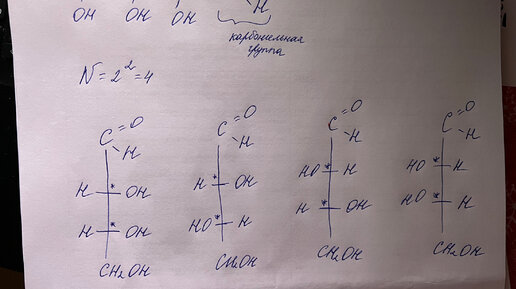 OH OH OH H
карбонильная
группа
N = 2² = 4
C=O C=O C=O C=O
H H H H
H * OH H * OH HO * H HO * H
H * OH HO * H H * OH HO * H
CH₂OH CH₂OH CH₂OH CH₂OH